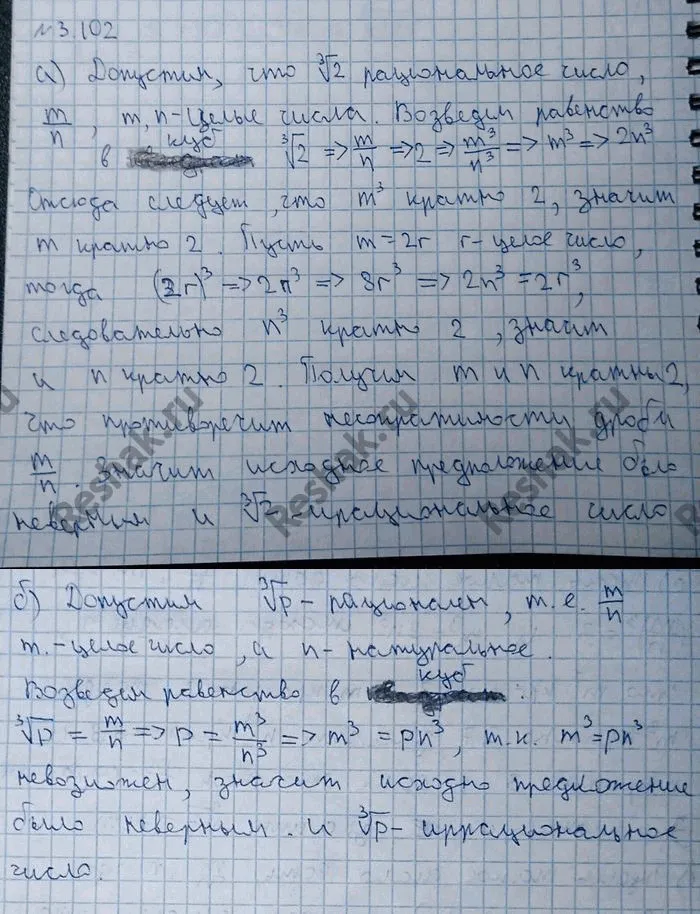 №3.102
а) Допустим, что ∛2 рациональное число,
m/n, m, n - целые числа. Возведем равенство
в куб ∛2 => m/n => 2 => m³/n³ => m³ => 2n³
Отсюда следует, что m³ кратно 2, значит
m кратно 2. Пусть m = 2r r - целое число,
тогда (2r)³ => 2n³ => 8r³ => 2n³ = 2r³,
следовательно n³ кратно 2, значит
и n кратно 2. Получим m и n кратны 2,
что противоречит несократимости дроби
m/n. Значит исходное предположение было
неверным и ∛2 - иррациональное число
б) Допустим ∛p - рационален, т.е. m/n
m. - целое число, а n - натуральное.
Возведем равенство в куб :
∛p = m/n => p = m³/n³ => m³ = pn³, т.к. m³ = pn³
невозможен, значит исходно предложение
было неверным. и ∛p - иррациональное
число.
Reshak.ru
Reshak.ru
Reshak.ru